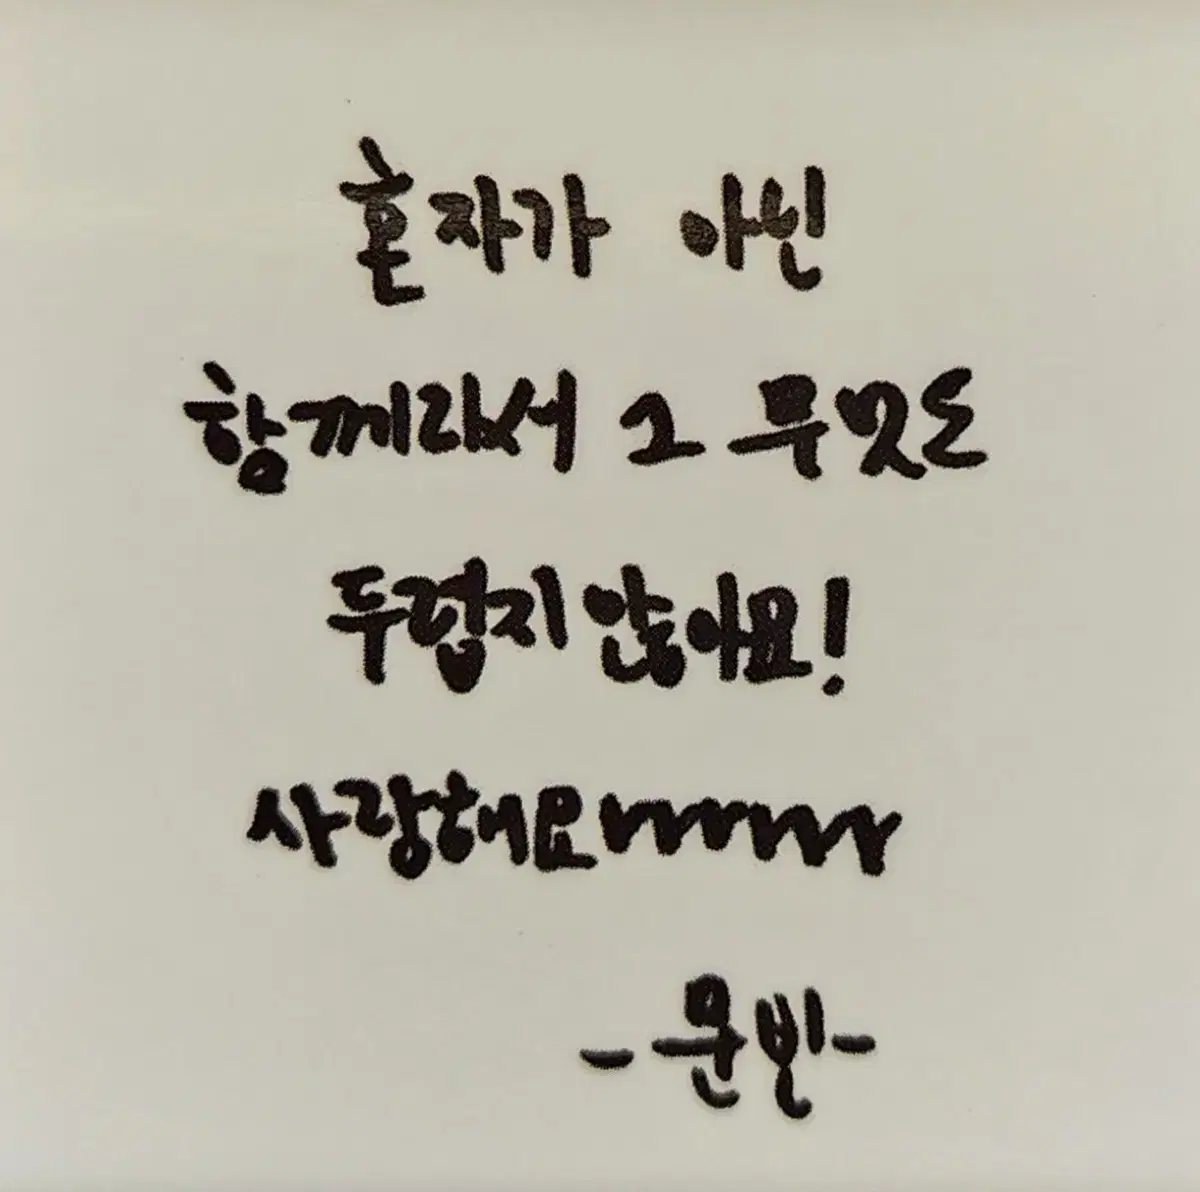 혼자가 아닌
함께라서 그 무엇도
두렵지 않아요!
사랑해요
-문빈-